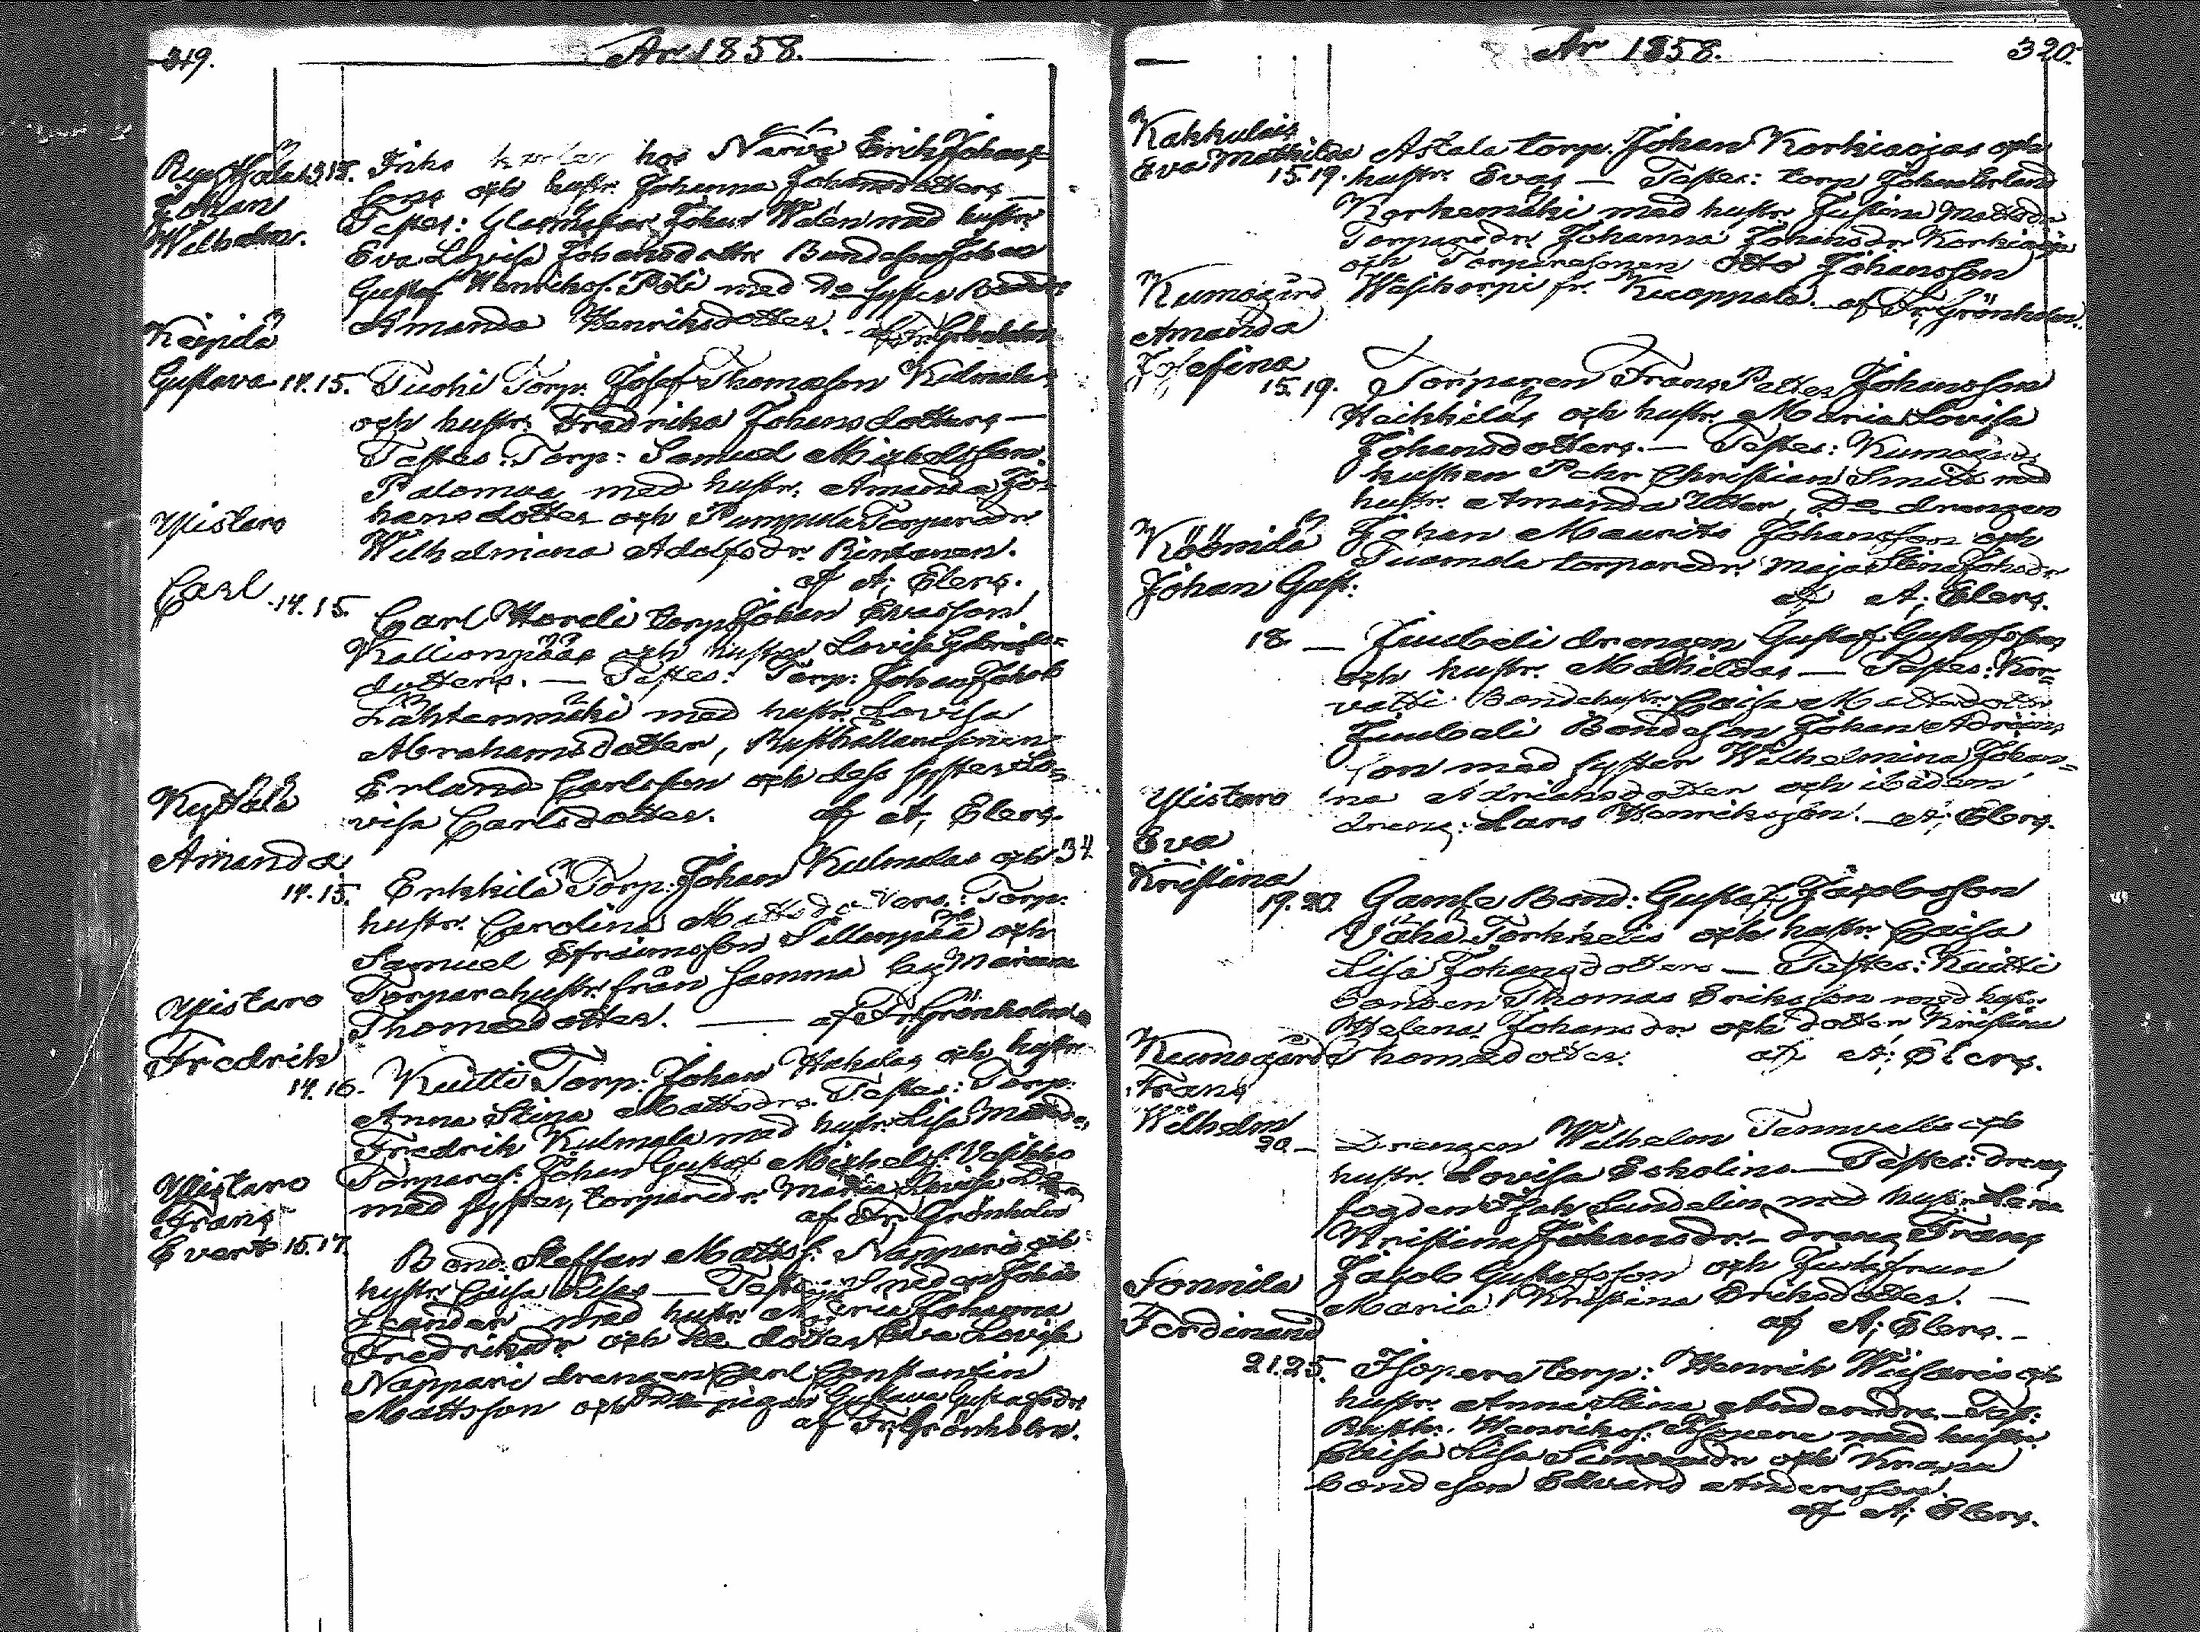 319.
År 1858.
Johan
Wilhelm.
13.15. hos Erik Johans-
sons och hustr. Johanna Johansdotters —
Testes: Johan Walén med hustr.
Eva Lovisa Johansdotter Bondesonen Johan
Gustaf Henrikss. med syster
Amanda Henriksdotter. - af Fr. Grönholm
Keipilä
Gustava 14.15. Tuohi Torp. Josef Thomasson Kulmala
och hustr. Fredrika Johansdotters —
Testes: Torp: Samuel Michelsson
Palomaa med hustr. Amanda Jo-
hansdotter och Pumpula Torparedr.
Wilhelmina Adolfsdr. Rintanen.
af A; Elers.
Yistaro
Carl 14.15. Carl Horeli torp. Johan Evasson
Kallionpääs och hustru Lovisa Gabriels-
dotters. — Testes: Torp: Johan Jakob
Lähtenmäki med hustr. Lovisa
Abrahamsdotter, Rusthållaresonen
Erland Carlsson och dess syster Lo-
visa Carlsdotter. af A; Elers.
Kyttälä
Amanda
14.15. Erkkilä Torp: Johan Kulmalas och 34
hustr. Carolina Mattsdotters: Torp:
Samuel Efraimsson Sillanpää och
Torparehustr. från samma by Maria
Thomasdotter. — af Fr; Grönholm
Yistaro
Fredrik
14.16. Kuitti Torp: Johan Hakalas och hustr.
Anna Stina Mattsdrs. Testes: Torp:
Fredrik Kulmala med hustr. Lisa Mattsdr,
Torpares: Johan Gustaf Michelss. Vesikko
med syster, torparedr. Maria Lovisa
af Fr; Grönholm
Yistaro
Frans
Evert 15.17.
Bond. Staffan Mattss: Nappari och
hustr. Caisa Lisas — Testes: Smeden Johan
Leander med hustr. Maria Johanna
Fredriksdr och dotter Eva Lovisa
Nappari drengen Carl Constantin
Mattsson och pigan Gustava Gustafsdr
af Fr; Grönholm.
År 1858.
320.
Kakkulais
Eva Mathilda
15.19. Astala torp. Johan Korkiaojas och
hustr. Evas — Testes: torp Johan Erland
Korkemäki med hustr. Justina Mattsdr
Torparedr. Johanna Johansdr. Korkiaoja
och Torparesonen Otto Johansson
Wäsitorpi fr. Kuoppala. af Fr; Grönholm.
Kumogård
Amanda
Josefina
15.19. Torparen Frans Petter Johansson
Heikkiläs och hustr. Maria Lovisa
Johansdotters. — Testes: Kumogårds
kusken Pehr Christian Smids med
hustr. Amanda Utter, De drengen
Johan Maurits Johansson och
Tuomola torparedr. Maja Stina Johsdr
af A; Elers.
Köömilä
Johan Gust:
18. — Juubeli drengen Gustaf Gustafsson
och hustr. Mathildas — Testes: Kor-
vatti Bondehustr. Caisa Mattsdotter
Juubeli Bondeson Johan Adrians-
son med syster Wilhelmina Johan-
na Adriansdotter och ibidem
dreng: Lars Henriksson. — A; Elers.
Yistaro
Eva
Kristina
19.20. Gamle Bond: Gustaf Jacobsson
Vähä Torkkelis och hustr. Caisa
Lisa Johansdotters — Testes: Kuitti
bonden Thomas Eriksson med hustr.
Helena Johansdr. och dotter Kristina
Thomasdotter. af A; Elers.
Kumogård
Frans
Wilhelm
20. — Drengen Wilhelm Tennvall och
hustr. Lovisa Eskolins — Testes: dreng
fogden Isak Sundelin med hustr. Lena
Kristina Johansdr. — dreng Frans
Jacob Gustafsson och
Maria Kristina Eriksdotter. —
af A; Elers. —
Sonnila
Ferdinand
21.25. Isopere torp: Henrik Wiisaris och
hustr. Anna Stina Andersdrs. — Test:
Rusth. Henrikss. Isopere med hustr.
Caisa Lisa Simonsdr och Krapu
bondeson Edvard Andersson.
af A; Elers.